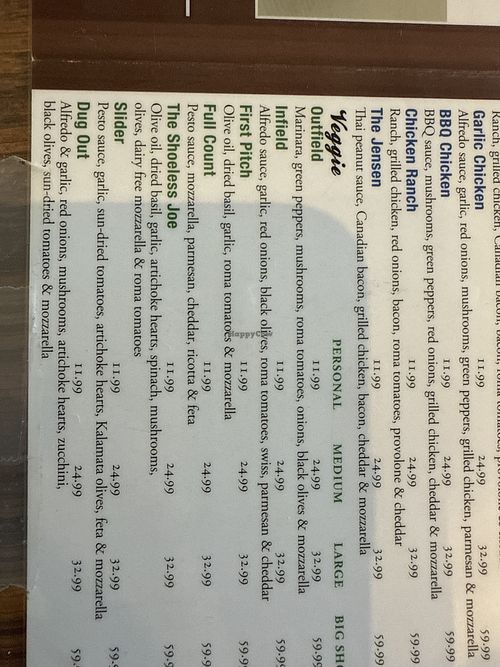 Ranch, grilled chicken, Canadian
Garlic Chicken 11.99 24.99 32.99 59.99
Alfredo sauce, garlic, red onions, mushrooms, green peppers, grilled chicken, parmesan & mozzarella
BBQ Chicken 11.99 24.99 32.99 59.99
BBQ sauce, mushrooms, green peppers, red onions, grilled chicken, cheddar & mozzarella
Chicken Ranch 11.99 24.99 32.99 59.99
Ranch, grilled chicken, red onions, bacon, roma tomatoes, provolone & cheddar
The Jensen 11.99 24.99 32.99 59.99
Thai peanut sauce, Canadian bacon, grilled chicken, bacon, cheddar & mozzarella
Veggie PERSONAL MEDIUM LARGE BIG
Outfield 11.99 24.99 32.99 59.99
Marinara, green peppers, mushrooms, roma tomatoes, onions, black olives & mozzarella
Infield 11.99 24.99 32.99 59.99
Alfredo sauce, garlic, red onions, black olives, roma tomatoes, swiss, parmesan & cheddar
First Pitch 11.99 24.99 32.99 59.99
Olive oil, dried basil, garlic, roma tomatoes & mozzarella
Full Count 11.99 24.99 32.99 59.99
Pesto sauce, mozzarella, parmesan, cheddar, ricotta & feta
The Shoeless Joe 11.99 24.99 32.99 59.9
Olive oil, dried basil, garlic, artichoke hearts, spinach, mushrooms,
olives, dairy free mozzarella & roma tomatoes
Slider 11.99 24.99 32.99 59.9
Pesto sauce, garlic, sun-dried tomatoes, artichoke hearts, Kalamata olives, feta & mozzarella
Dug Out 11.99 24.99 32.99 59.
Alfredo & garlic, red onions, mushrooms, artichoke hearts, zucchini,
black olives, sun-dried tomatoes & mozzarella
HappyCow